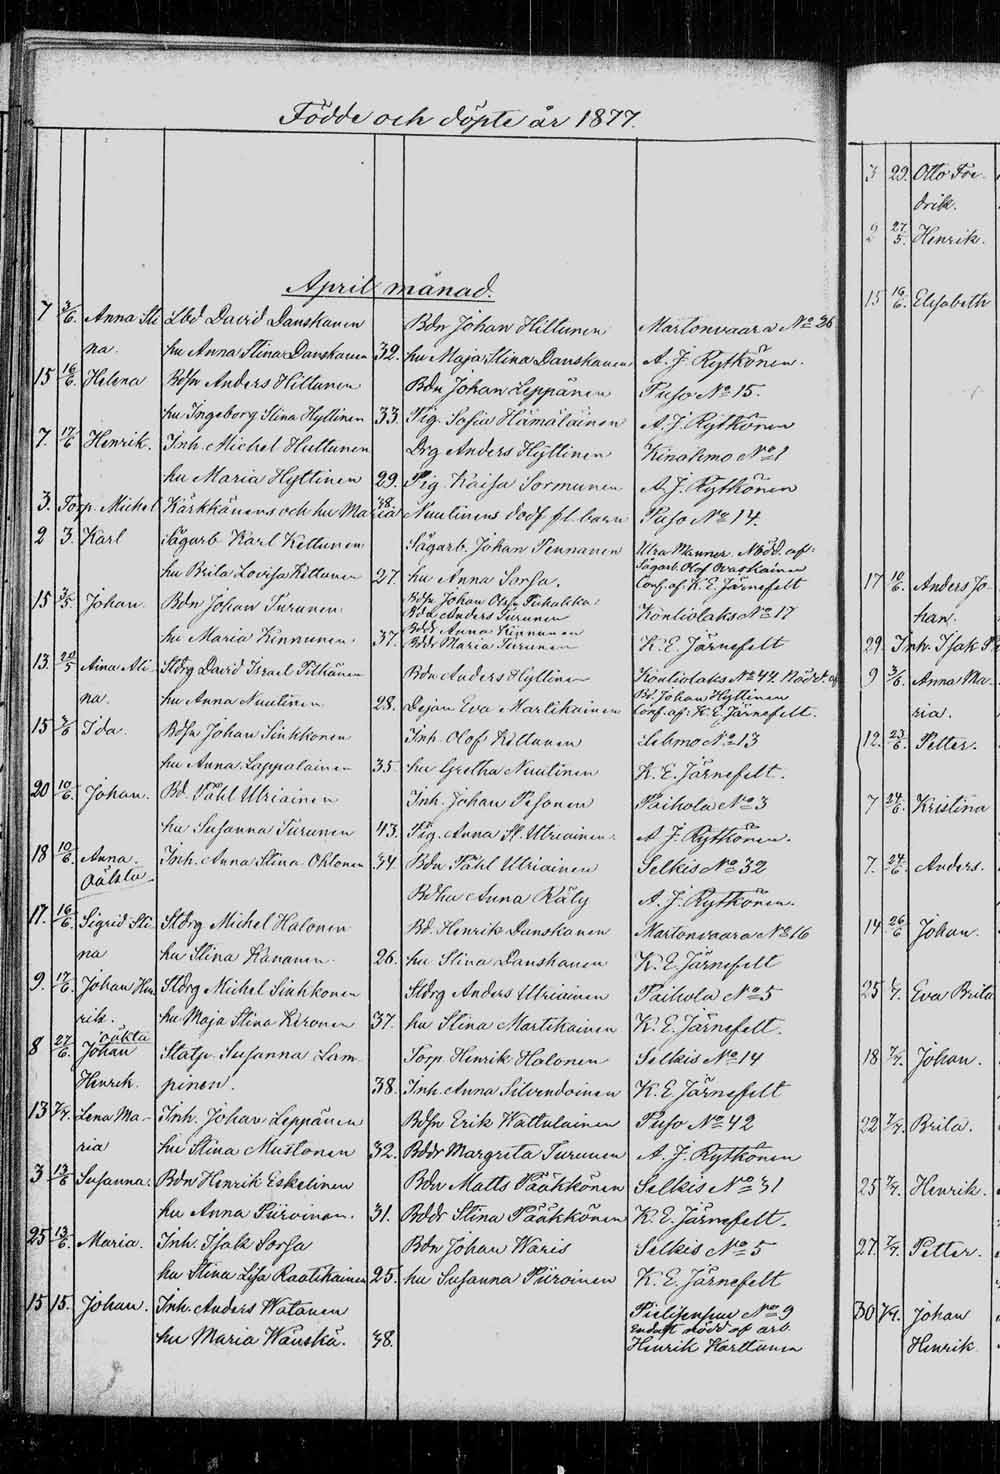 Födde och döpte år 1877.
April månad.
7 3/6. Anna Sti Lbd David Danskanen Bdn Johan Hiltunen Martonvaara No 26
na. hu Anna Stina Danskanen 32. hu Maja Stina Danskanen A. J. Rytkönen.
15 16/6. Helena Bdsn Anders Hiltunen Bdn Johan Leppänen Puso No 15.
hu Ingeborg Stina Hyttinen 33. Pig. Sofia Hämäläinen A. J. Rytkönen
7. 17/6 Henrik. Inh. Michel Huttunen Drg Anders Hyttinen Kinahmo No 1
hu Maria Hyttinen 29. Pig. Kaisa Sormunen A. J. Rytkönen
3. Torp. Michel Kärkkänens och hu Maria 38. Nuutinens dödf fl. barn Puso No 14.
2 3. Karl Sågarb. Karl Kettunen Sågarb. Johan Pennanen Utra Manner. Nödd. af:
Sågarb. Olof Vaskainen
hu Brita Lovisa Kettunen 27. hu Anna Sorsa. Conf. af. K. E. Järnefelt
15 3/5. Johan. Bdn Johan Turunen Bdsn Johan Olsson Puhakka
Bdn Anders Turunen Kontiolaks No 17
hu Maria Kinnunen 37. Bddr Anna Kinnunen
Bddr Maria Turunen K. E. Järnefelt
13. 20/5 Aina Ali Stdrg David Israel Pitkänen Bdn Anders Hyttinen Kontiolaks No 44. Nödd. af
Bd. Johan Hyttinen
na. hu Anna Nuutinen 28. Dejan Eva Martikainen Conf. af: K. E. Järnefelt.
15 3/6 Ida. Bdsn Johan Sinkkonen Inh. Olof Kettunen Lehmo No 13
hu Anna Lappalainen 35. hu Gretha Nuutinen K. E. Järnefelt.
20 10/6. Johan. Bd. Påhl Utriainen Inh. Johan Pesonen Paihola No 3
hu Susanna Turunen 43. Pig. Anna St. Utriainen. A. J. Rytkönen.
18 10/6. Anna. Inh. Anna Stina Oktonen 34. Bdn Påhl Utriainen Selkis No 32
Oäkta Bdhu Anna Räty A. J. Rytkönen.
17. 16/6. Sigrid Sti Stdrg Michel Halonen Bd. Henrik Danskanen Martonvaara No 16
na hu Stina Kananen. 26. hu Stina Danskanen K. E. Järnefelt
9. 17/6. Johan Hen Stdrg Michel Sinkkonen Stdrg Anders Utriainen Paihola No 5
rik. hu Maja Stina Keronen 37. hu Stina Martikainen K. E. Järnefelt.
oäkta
8 27/6. Johan Statp. Susanna Lam Torp. Henrik Halonen Selkis No 14
Henrik. pinen. 38. Inh. Anna Silvendoinen K. E. Järnefelt
13 7/7. Lena Ma- Inh. Johan Leppänen Bdsn Erik Wattulainen Puso No 42
ria hu Stina Mustonen 32. Bddr Margreta Turunen A. J. Rytkönen
3 13/6 Susanna. Bdn Henrik Eskelinen Bdn Matts Pääkkönen Selkis No 31
hu Anna Piiroinen. 31. Bddr Stina Pääkkönen K. E. Järnefelt.
25 13/6. Maria. Inh. Isak Sorsa Bdn Johan Waris Selkis No 5
hu Stina Lisa Raatikainen 25. hu Susanna Piiroinen K. E. Järnefelt
15 15. Johan. Inh. Anders Watanen Pielisensuu No 9
Endast nödd af arb.
hu Maria Wänskä. 38. Henrik Karttunen
3 29. Otto Fre-
drik.
2 27/5. Henrik.
15 16/6. Elisabeth
17 10/6. Anders Jo-
han.
29. Inh. Isak
9 3/6. Anna Ma-
ria.
12. 23/6. Petter.
7 24/6. Kristina
7. 24/6. Anders.
14 26/6 Johan.
25 1/7. Eva Brita
18 7/7. Johan.
22 7/7. Brita.
25 7/7. Henrik.
27. 7/7. Petter.
30 1/7. Johan
Henrik